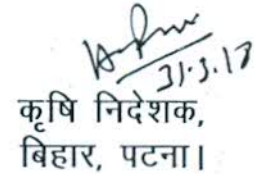 31.3.17
कृषि निदेशक,
बिहार, पटना।